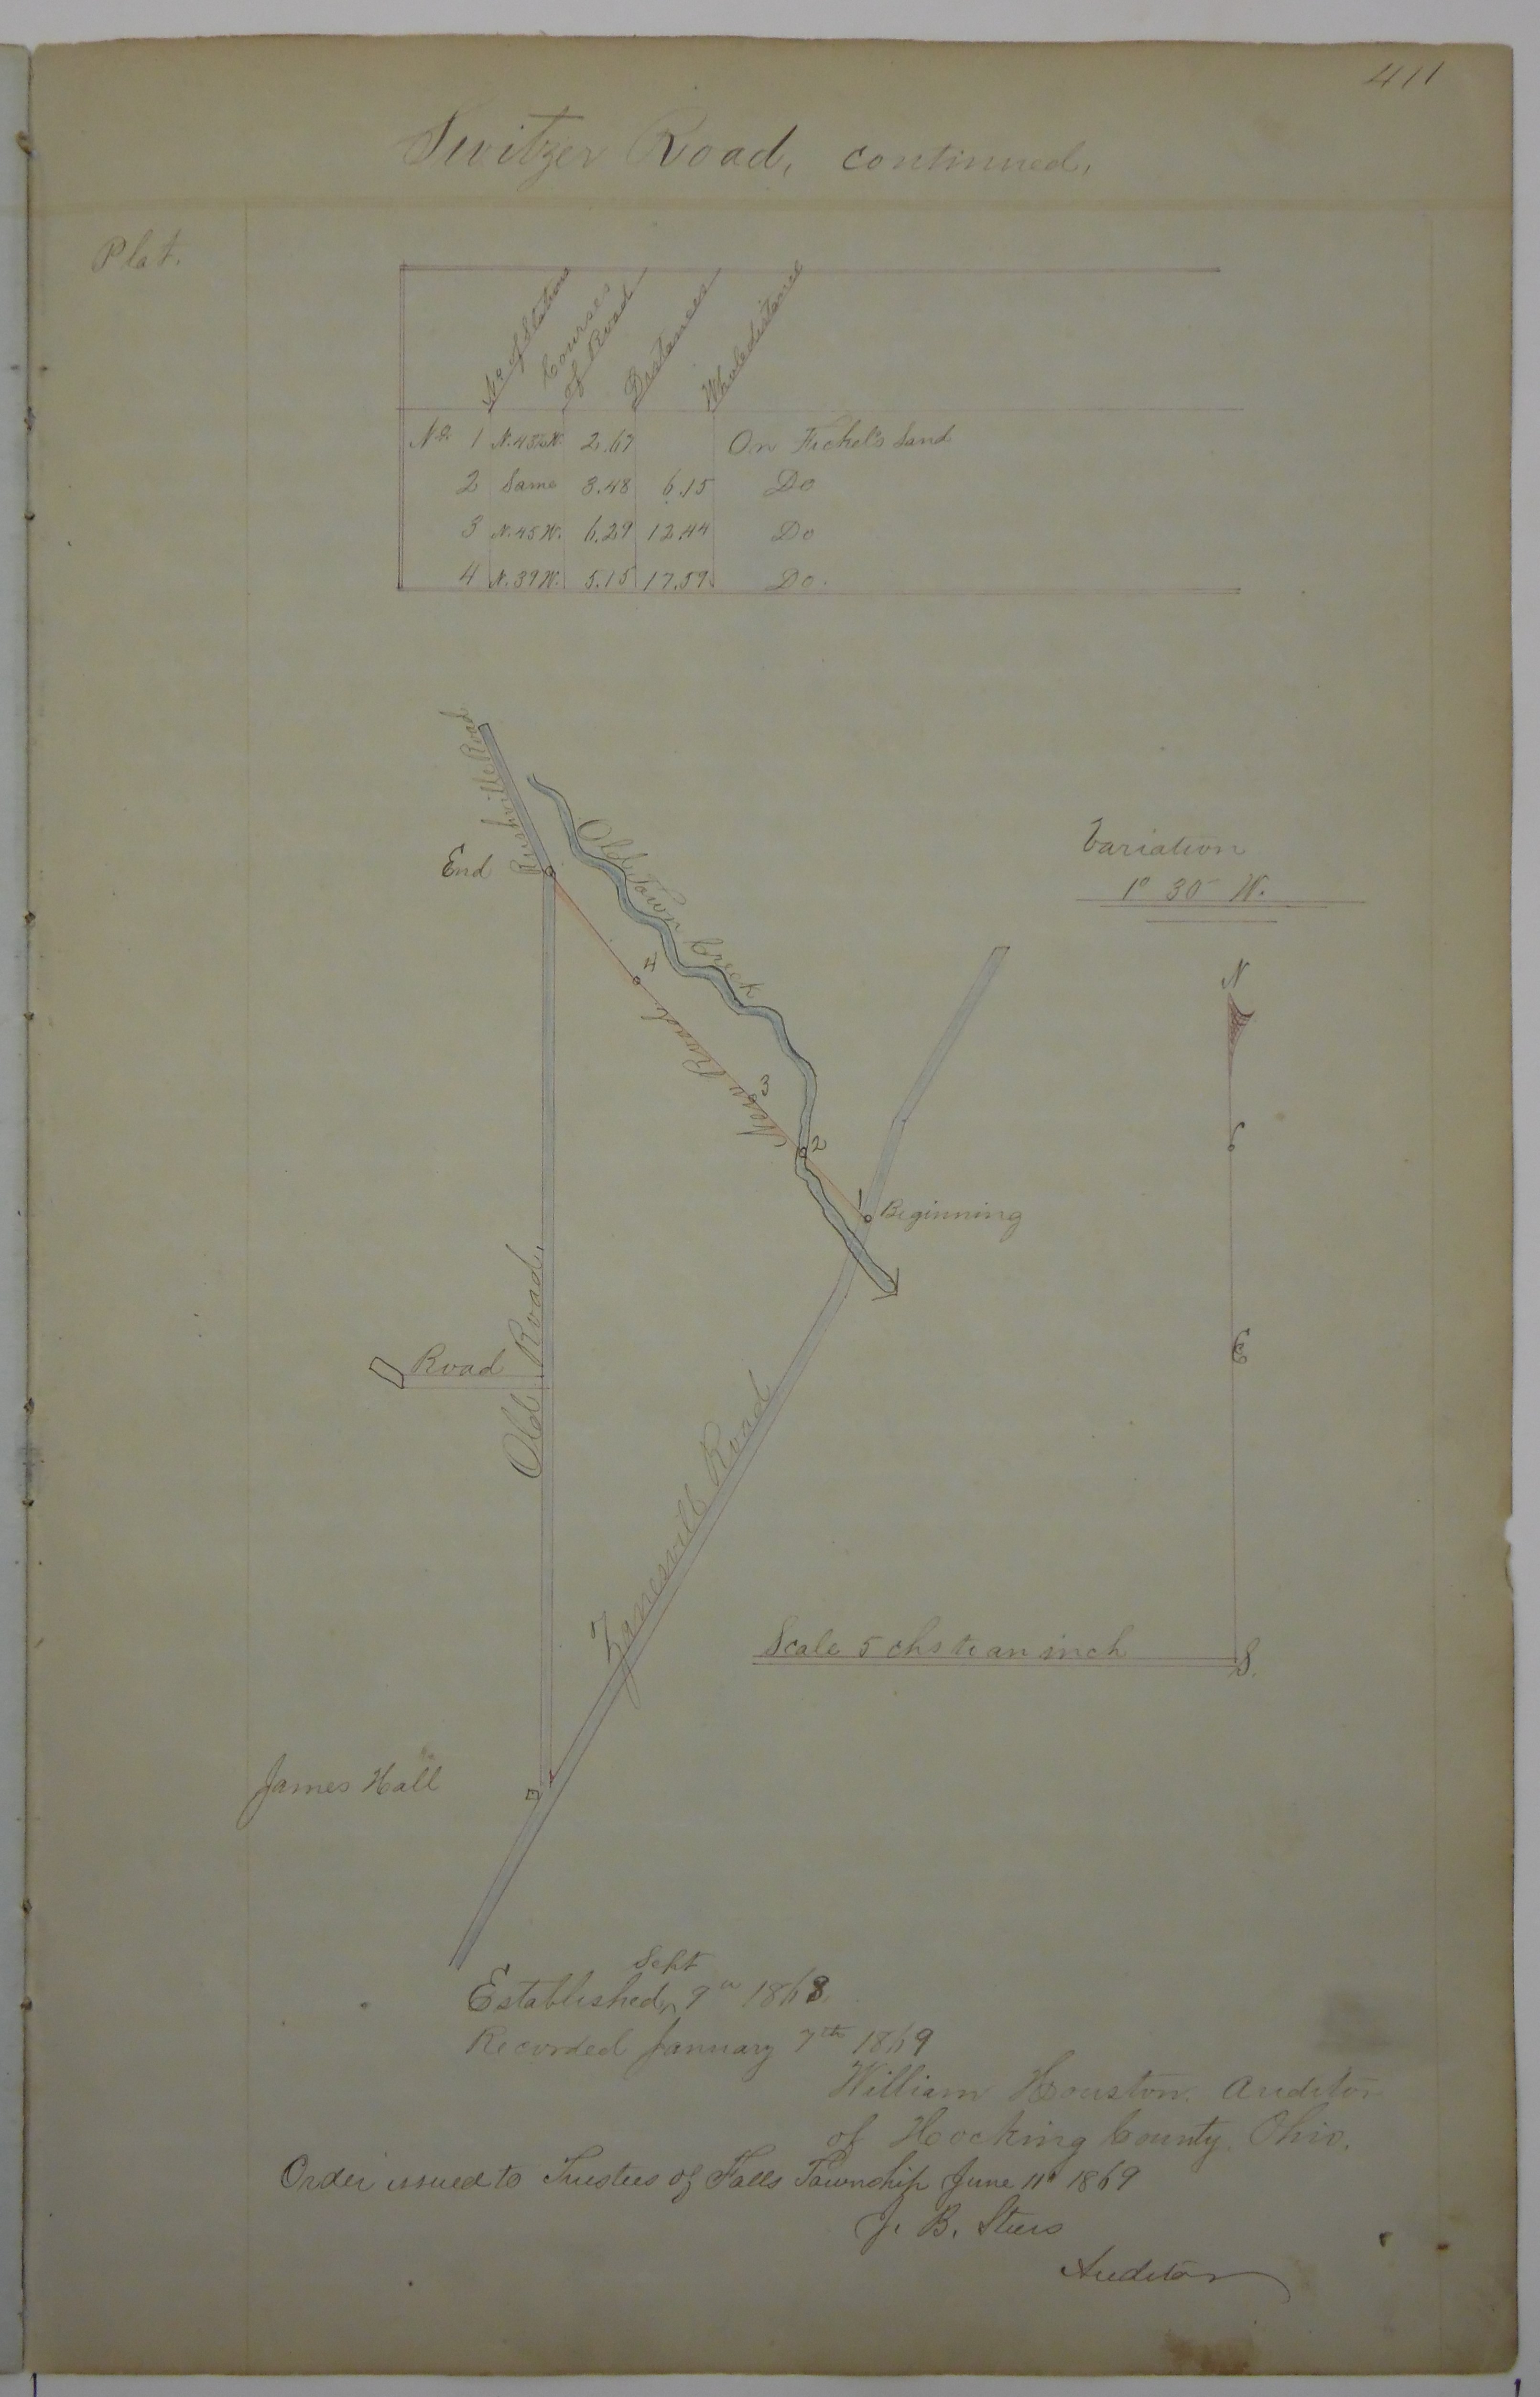 411
Switzer Road, continued,
Plat.
No of Stations
Courses
of Road
Distances
Whole distance
No. 1 N. 43½ W. 2.67 On Fickel's Land
2 Same 3.48 6.15 Do
3 N. 45 W. 6.29 12.44 Do
4 N. 39 W. 5.15 17.59 Do.
Rushville Road
End
Old Town Creek
Variation
1° 30' W.
4
N
New Road
3
2
1
Beginning
Old Road,
Road
Zanesvill Road
Scale 5 chs to an inch
S.
James Hall
Sept
Established ^ 9th 1868
Recorded January 7th 1869
William Houston. Auditor
of Hocking County. Ohio.
Order issued to Trustees of Falls Township June 11th 1869
J. B. Steers
Auditor